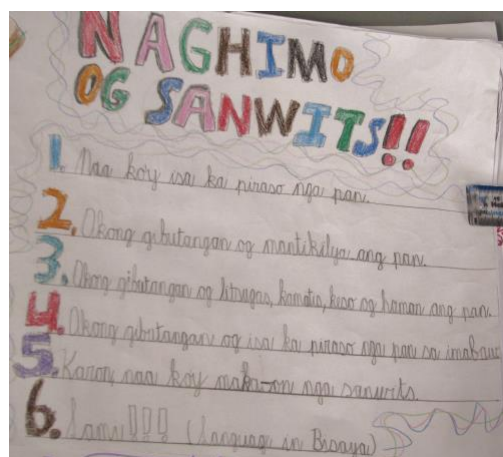 NAGHIMO
OG SANWITS!!
1. Naa koy isa ka piraso nga pan.
2. Akong gibutangan og mantikilya ang pan.
3. Akong gibutangan og litsugas, kamatis, keso og haman ang pan.
4. Akong gibutangan og isa ka piraso nga pan sa imabaw
5. Karon, naa koy maka-on nga sanwits.
6. Lami!!! (Language in Bisaya)